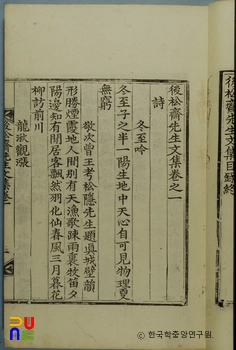 後松齋先生文集卷之一
詩
冬至吟
冬至子之半一陽生地中天心自可見物理
無窮
敬次曾王考松隱先生題眞城壁韻
形勝煙霞地人間別有天漁歌踈雨裏牧笛夕
陽邊知有閒居客飄然羽化仙春風三月暮花
柳訪前川
龍湫觀漲
後松齋先生文集目錄終
© 한국학중앙연구원